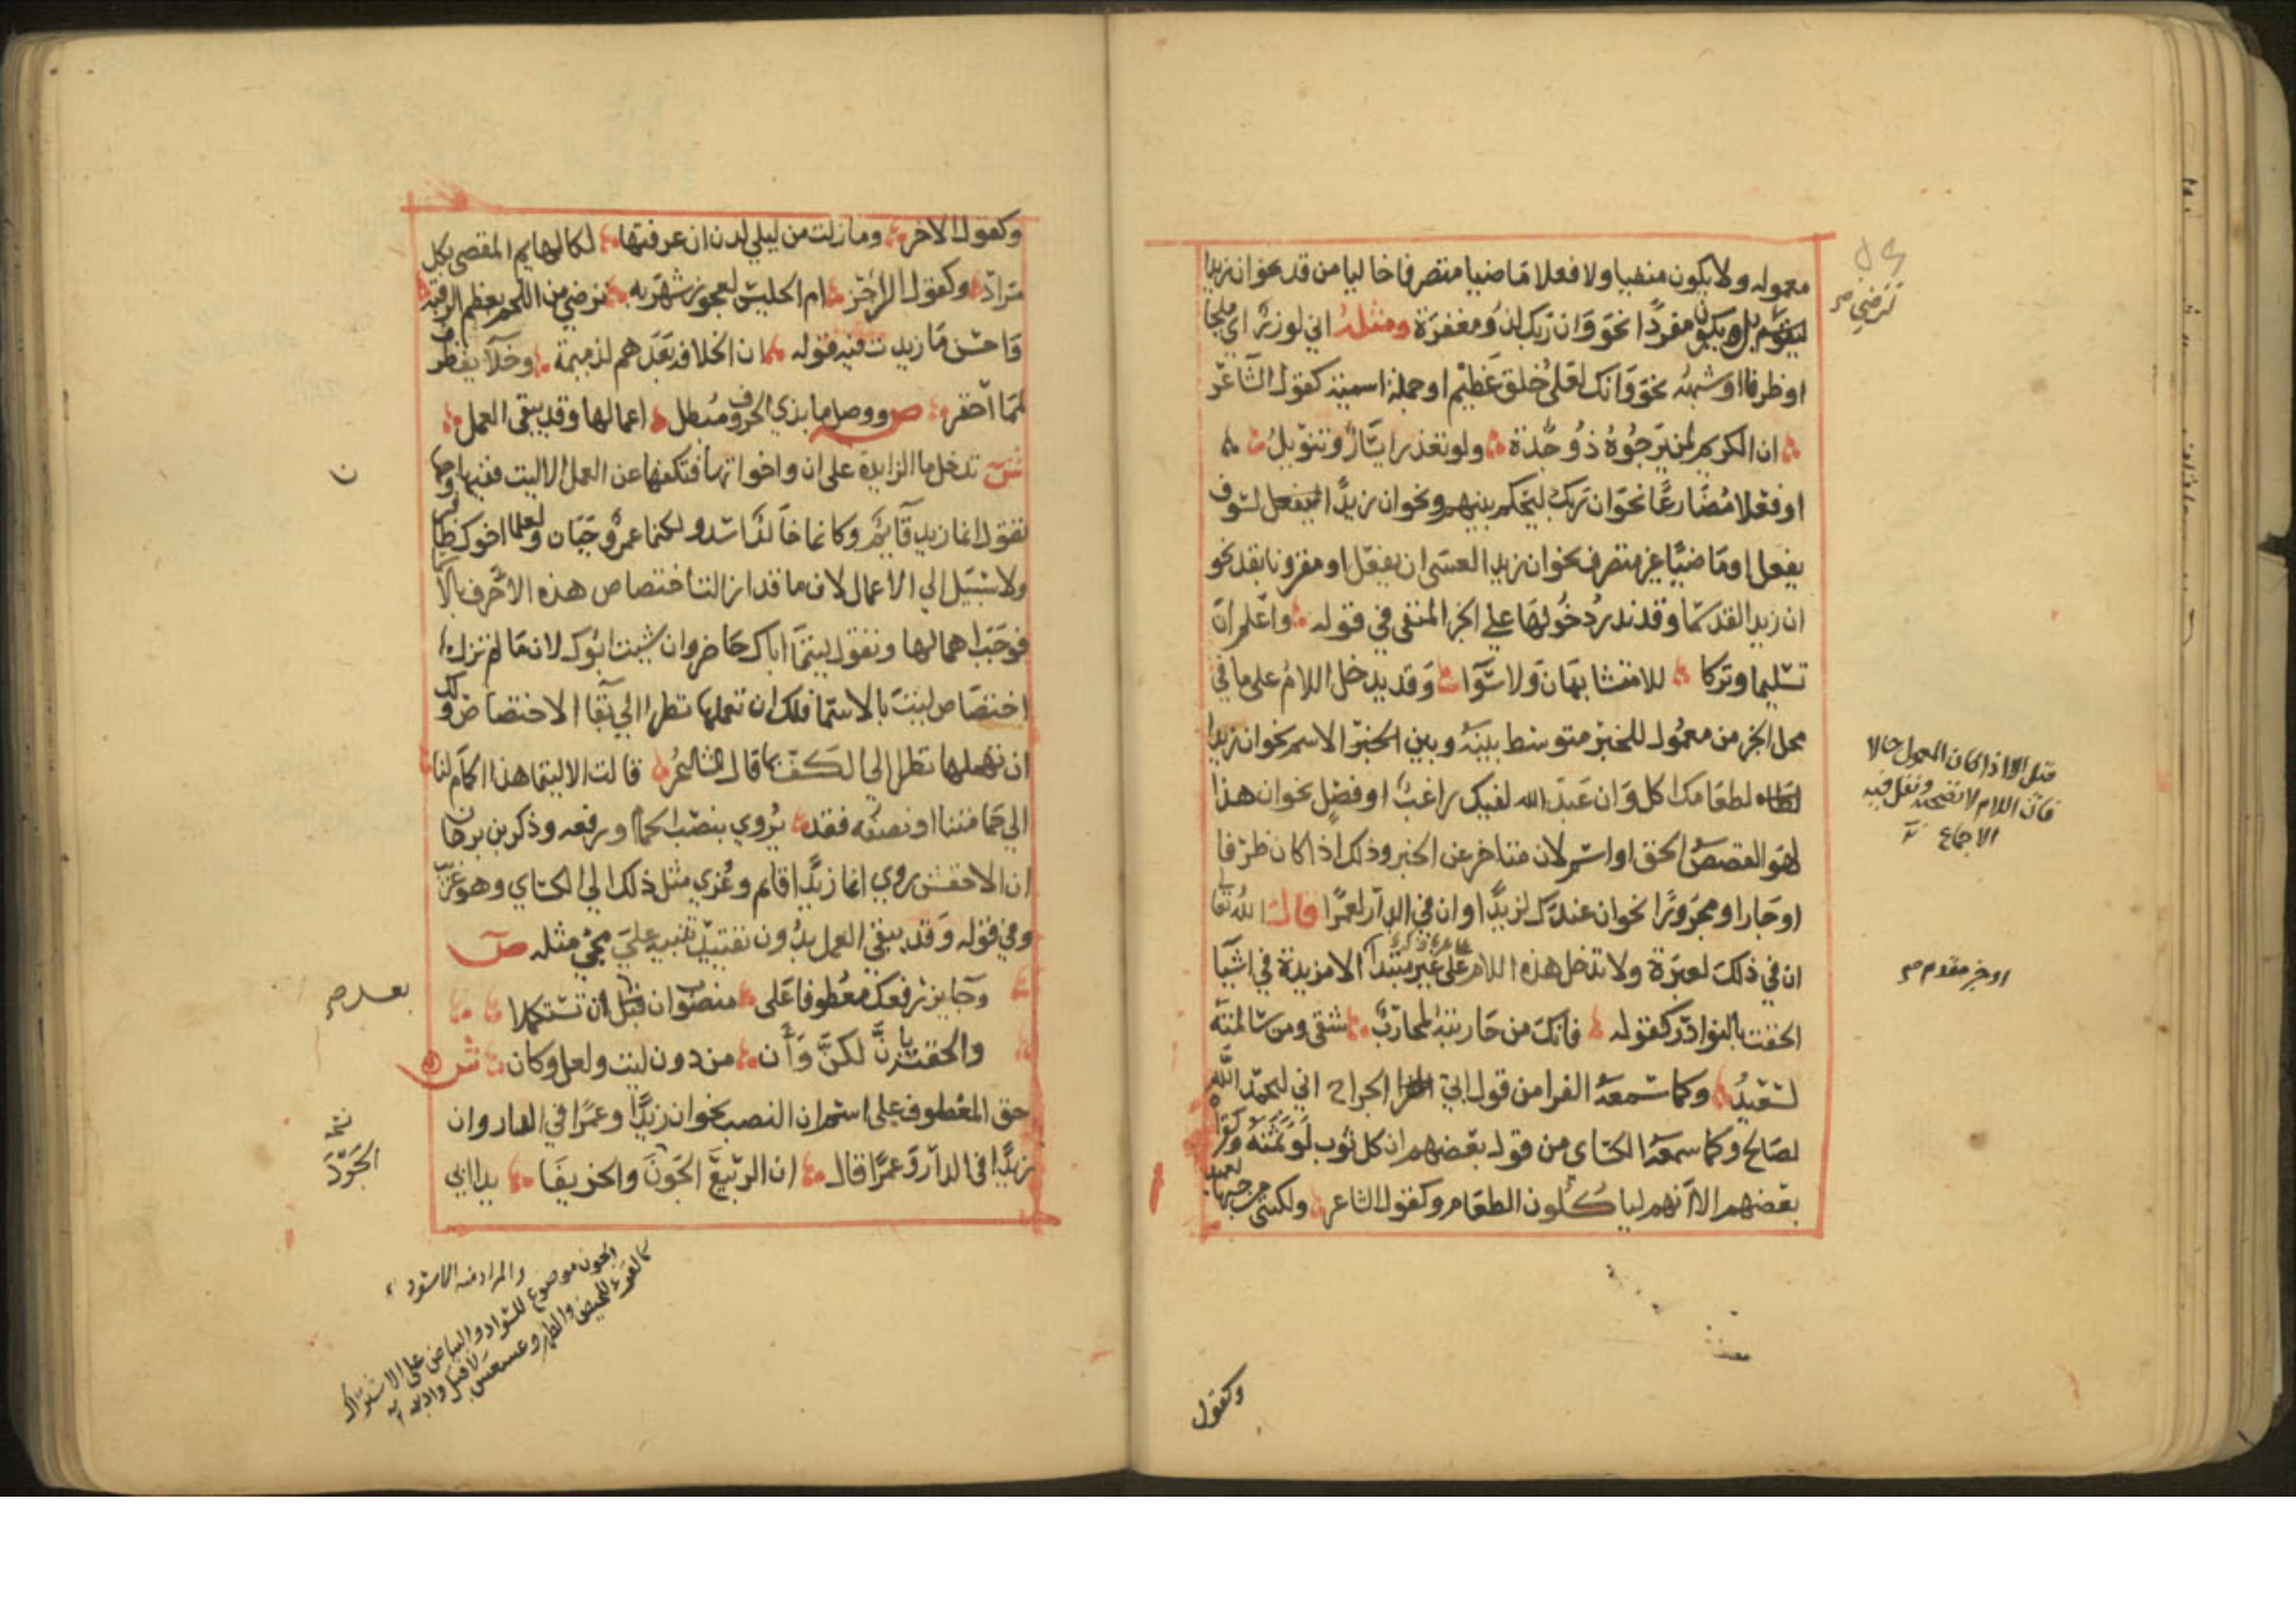 معموله ولا يكون منفيا ولا فعلا ماضيا متصرفا خاليا من قد نحو ان زيدا
ترضي صح
ليقوم بل ويكون مفردا نحو وان ربك لذو مغفرة ومثله اني لوزر اي ملجا
او ظرفا او شبهه نحو وانك لعلى خلق عظيم او جملة اسمية كقول الشاعر
ان الكريم لمن يرجوه ذو جدة ولو تعذر ايسار وتنويل
او فعلا مضارعا نحو ان ربك ليحكم بينهم ونحو ان زيدا لسوف
يفعل او ماضيا غير متصرف نحو ان زيدا لعسى ان يفعل او مقرونا بقد نحو
ان زيدا لقد سما وقد ندر دخولها على الخبر المنفي في قوله واعلم ان
تسليما وتركا للامتشابهان ولا سوا وقد يدخل اللام على ما في
محل الخبر من معمول للخبر متوسط بينه وبين الاسم نحو ان زيدا
لطعامك اكل وان عبد الله لفيك راغب او فصل نحو ان هذا
قيل الا اذا كان المعمول حالا
فان اللام لا تصحبه ونقل فيه
الاجماع
لهو القصص الحق او اسم لان متاخر عن الخبر وذلك اذا كان ظرفا
او جارا ومجرورا نحو ان عندك لزيدا وان في الدار لعمرا قال الله تعا
ان في ذلك لعبرة ولا تدخل هذه اللام على غير مبتدا الا مزيدة في اشيا
او خبر مقدم صح
الحقت بالنوادر كقوله فانك من حاربته لمحارب شقي ومن سالمته
لسعيد وكما سمعه الفرا من قول ابي الجراح اني لبحمد الله
لصالح وكما سمعه الكساي من قول بعضهم ان كل ثوب لو ثمنه وكقرا
بعضهم الا انهم لياكلون الطعام وكقول الشاعر ولكنني من حبها لعميد
وكقول
وكقول الاخر وما زلت من ليلي لدن ان عرفتها لكالهايم المقصى بكل
مراد وكقول الراجز ام الحليس لعجوز شهربه ترضي من اللحم بعظم الرقبه
واحسن ما زيدت فيه قوله ان الخلافة بعدهم لذميمة وخلايف ظرف
لمما احقر ص ووصل ما بذي الحروف مبطل اعمالها وقد يبقى العمل
ش تدخل ما الزايدة على ان واخواتها فتكفها عن العمل الا ليت ففيها وجها
ن
فتقول انما زيد قايم وكانما خالد اسد ولكنما عمرو جبان ولعلما اخوك ظا
ولا سبيل الى الاعمال لان ما قد ازالت اختصاص هذه الاحرف بالا
فوجب اهمالها وتقول ليتما اباك حاضر وان شيت ابوك لان ما لم تزل
اختصاص ليت بالاسما فلك ان تعملها نظرا الى بقا الاختصاص ولك
ان تهملها نظرا الى الكف كما قال الشاعر قالت الا ليتما هذا الحمام لنا
الى حمامتنا او نصفه فقد يروي بنصب الحمام ورفعه وذكر بن برهان
ان الاخفش روي انما زيدا قايم وعزي مثل ذلك الى الكساي وهو غريب
وفي قوله وقد يبقى العمل بدون تقييد تنبيه على مجي مثله ص
وجايز رفعك معطوفا على منصوب ان قبل ان تستكملا
بعد صح
والحقت بان لكن وان من دون ليت ولعل وكان ش
حق المعطوف على اسم ان النصب نحو ان زيدا وعمرا في الدار وان
زيدا في الدار وعمرا قال ان الربيع الجون والخريفا يدا ابي
الجود
والمراد منه الاسود
والجون موضوع للسواد والبياض على الاشتراك
كالقرء للحيض والطهر وعسعس لاقبل وادبر